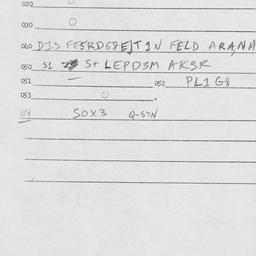 020
030 0
040 DIS FESRDG8EJTIN FELD ARANA
050 S1 St LEPD3M AKSR
051 052 PL1G8
053 0
054 SOX3 Q-SYN